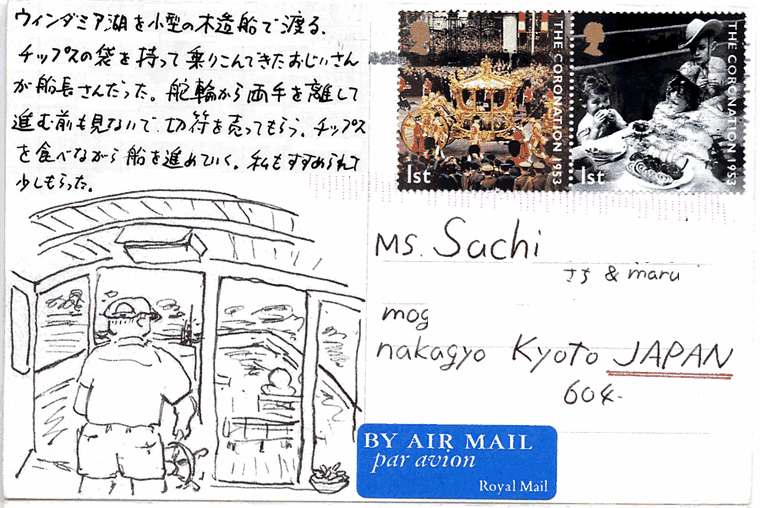 ウィンダミア湖を小型の木造船で渡る.
チップスの袋を持って乗りこんできたおじいさん
が船長さんだった。舵輪から両手を離して
進む前も見ないで切符を売ってもらう。チップス
を食べながら船を進めていく。私もすすめられて
少しもらった。
THE CORONATION 1953
1st
THE CORONATION 1953
1st
MS. Sachi
さち & maru
mog
nakagyo Kyoto JAPAN
604-
BY AIR MAIL
par avion
Royal Mail